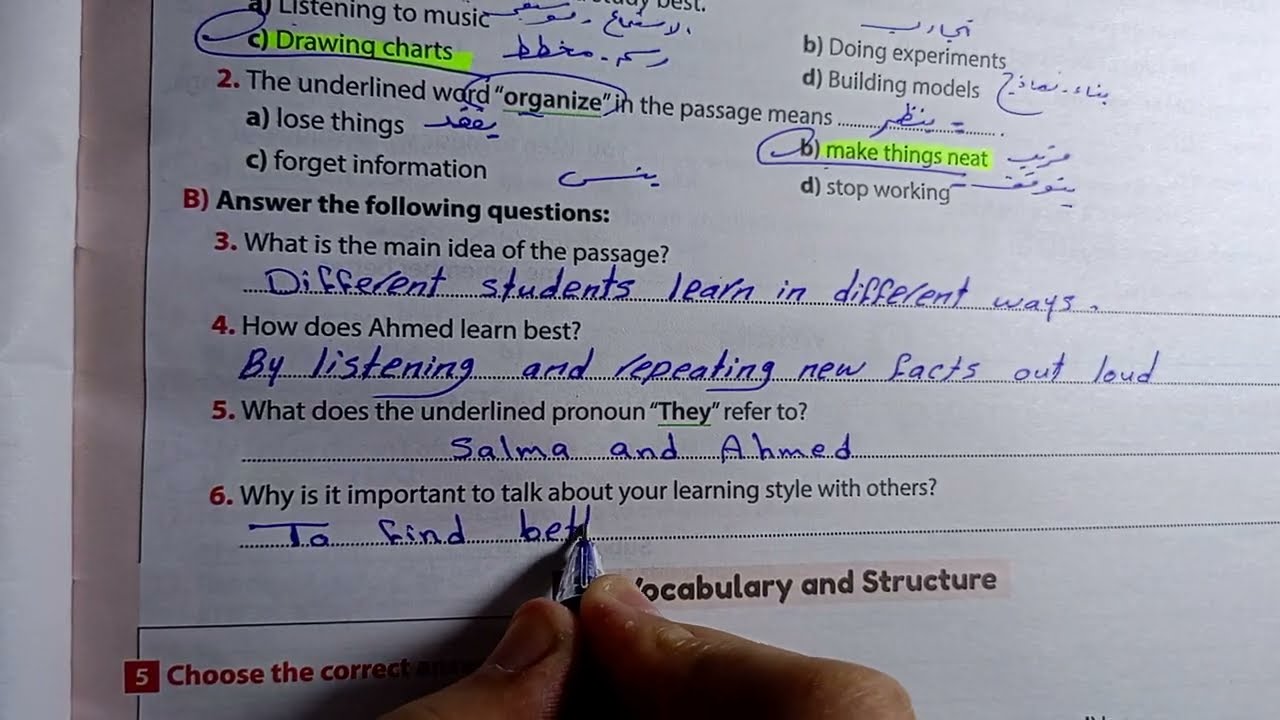 study best.
a) Listening to music الاستماع - موسيقى
تجارب
b) Doing experiments
c) Drawing charts رسم - مخطط
d) Building models بناء - نماذج
2. The underlined word "organize" in the passage means .......... .
= ينظم
a) lose things يفقد
b) make things neat مرتب
c) forget information ينسى
d) stop working يتوقف
B) Answer the following questions:
3. What is the main idea of the passage?
Different students learn in different ways.
4. How does Ahmed learn best?
By listening and repeating new facts out loud
5. What does the underlined pronoun "They" refer to?
Salma and Ahmed
6. Why is it important to talk about your learning style with others?
To find bett
Vocabulary and Structure
5 Choose the correct